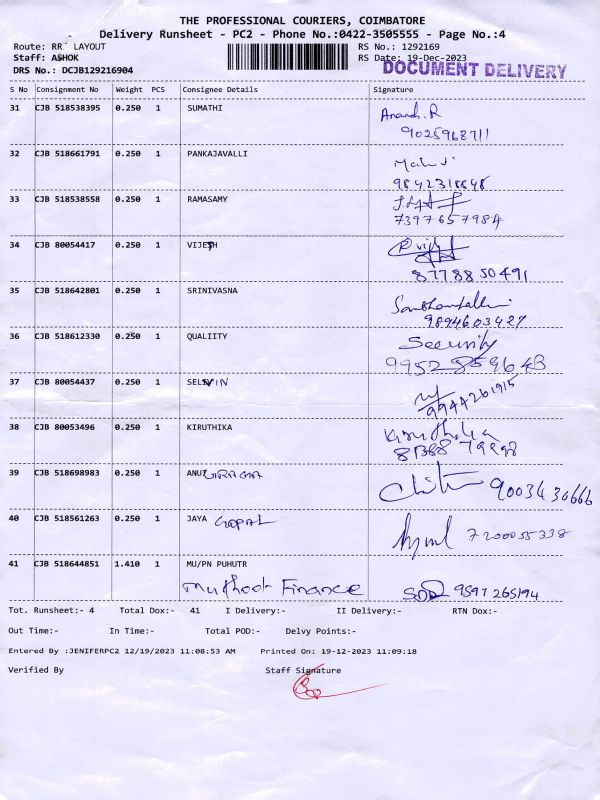 THE PROFESSIONAL COURIERS, COIMBATORE
Delivery Runsheet - PC2 - Phone No.:0422-3505555 - Page No.:4
Route: RR LAYOUT RS No.: 1292169
Staff: ASHOK RS Date: 19-Dec-2023
DOCUMENT DELIVERY
DRS No.: DCJB129216904
S No Consignment No Weight PCS Consignee Details Signature
31 CJB 518538395 0.250 1 SUMATHI Anand.R
9025968711
32 CJB 518661791 0.250 1 PANKAJAVALLI
9842318648
33 CJB 518538558 0.250 1 RAMASAMY
7397657984
34 CJB 80054417 0.250 1 VIJESH
8778850491
35 CJB 518642801 0.250 1 SRINIVASNA
9894603427
36 CJB 518612330 0.250 1 QUALIITY Security
9952859643
37 CJB 80054437 0.250 1 SELVIN
9944261915
38 CJB 80053496 0.250 1 KIRUTHIKA Kiruthika
39 CJB 518698983 0.250 1 ANU
9003430666
40 CJB 518561263 0.250 1 JAYA GOPAL
7200055338
41 CJB 518644851 1.410 1 MU/PN PUHUTR
Muthoot Finance 9597265194
Tot. Runsheet:- 4 Total Dox:- 41 I Delivery:- II Delivery:- RTN Dox:-
Out Time:- In Time:- Total POD:- Delvy Points:-
Entered By :JENIFERPC2 12/19/2023 11:08:53 AM Printed On: 19-12-2023 11:09:18
Verified By Staff Signature